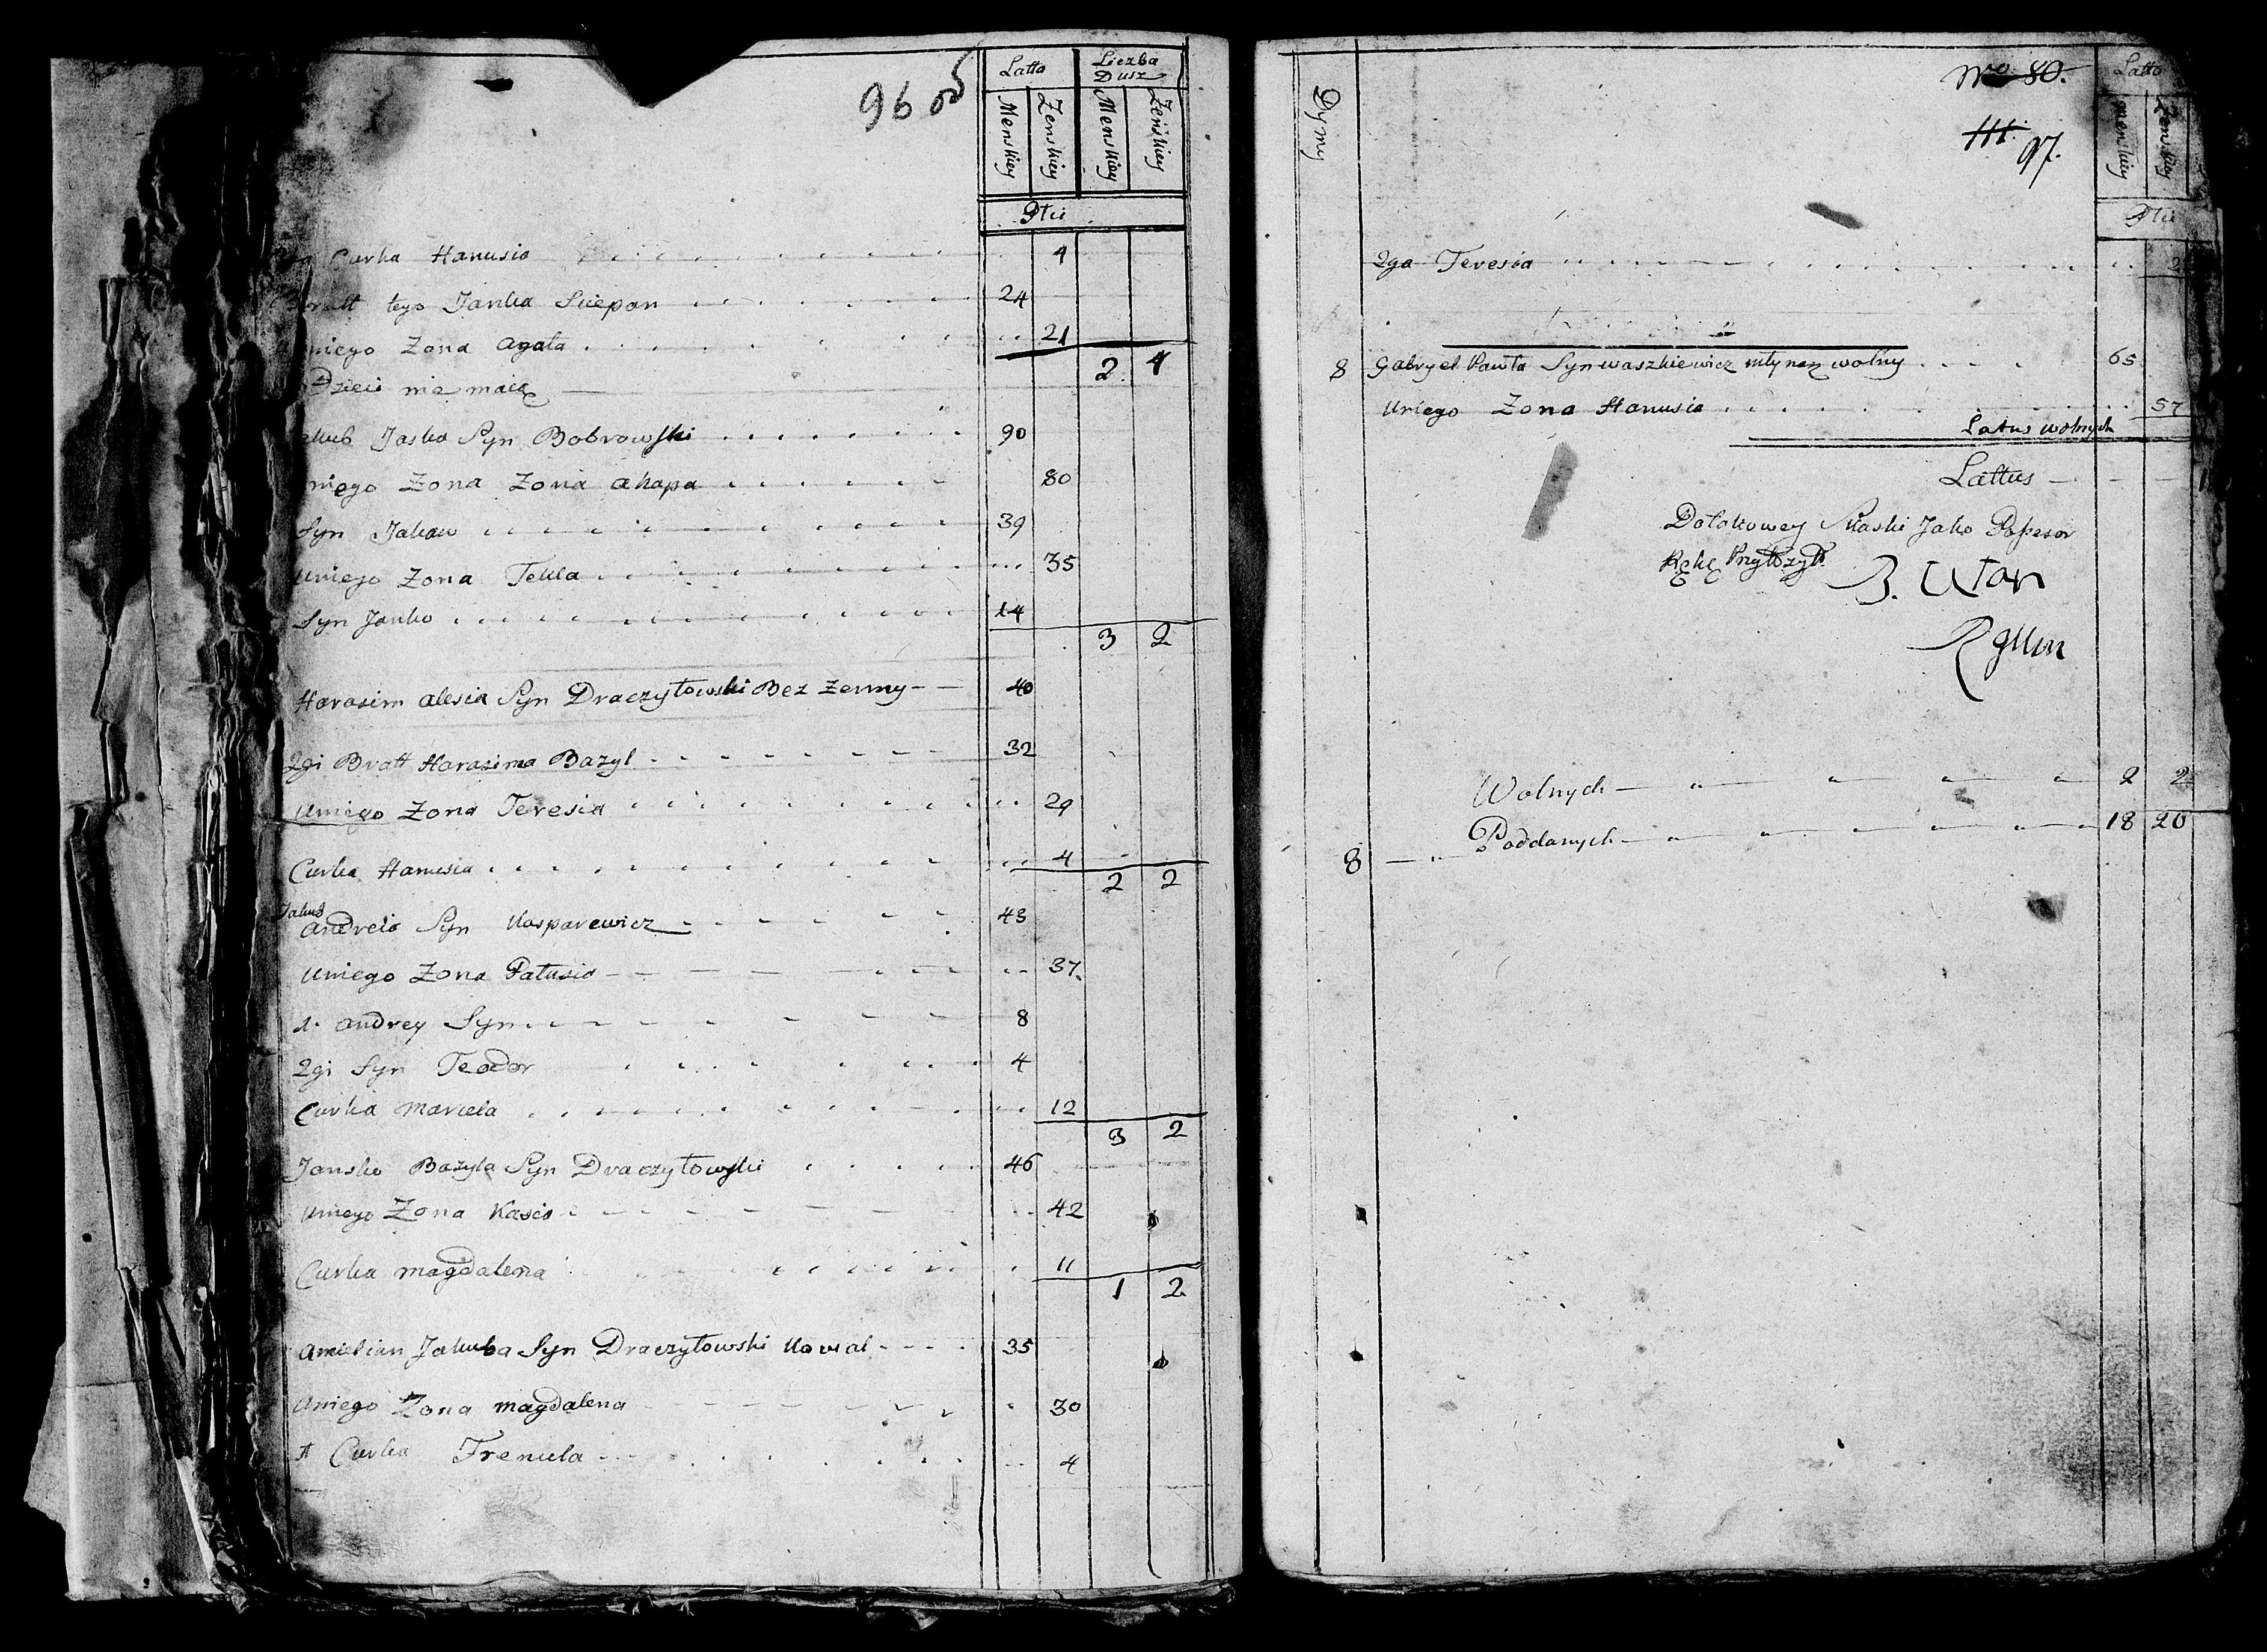 96 об
Latta Liczba Dusz
Menskiey Zenskiey Menskiey Zenskiey
Płci
Curka Hanusia 4
Bratt tego Janka Sciepan 24
Uniego Zona Agata 21
2 4
Dzieci nie maią
Jakub Jaska Syn Bobrowski 90
Uniego Zona Zona Ahapa 80
Syn Jakow 39
Uniego Zona Tekla 35
Syn Janko 14
3 2
Harasim Alesia Syn Draczyłowski Bez Zenny 40
2gi Bratt Harasima Bazyl 32
Uniego Zona Teresia 29
Curka Hanusia 4
2 2
Jakub
Andreia Syn Kasparewicz 43
Uniego Zona Patusia 37
1. Andrey Syn 8
2gi Syn Teodor 4
Curka Marcela 12
3 2
Jansko Bazyla Syn Draczyłowski 46
Uniego Zona Kasia 42
Curka Magdalena 11
1 2
Amielian Jakuba Syn Draczyłowski Kowal 35
Uniego Zona Magdalena 30
Curka Freniela 4
Dymy
No 80.
97.
Latta
Menskiey Zenskiey
Płci
2ga Teresia 2
8 Gabryel Pawła Syn Waszkiewicz młynarz wolny 65
Uniego Zona Hanusia 57
Latus wolnych
Lattus
Dołakowey Skaski Jako Possesor
Rękę Przyłozył
Wolnych 2 2
8 Poddanych 18 20